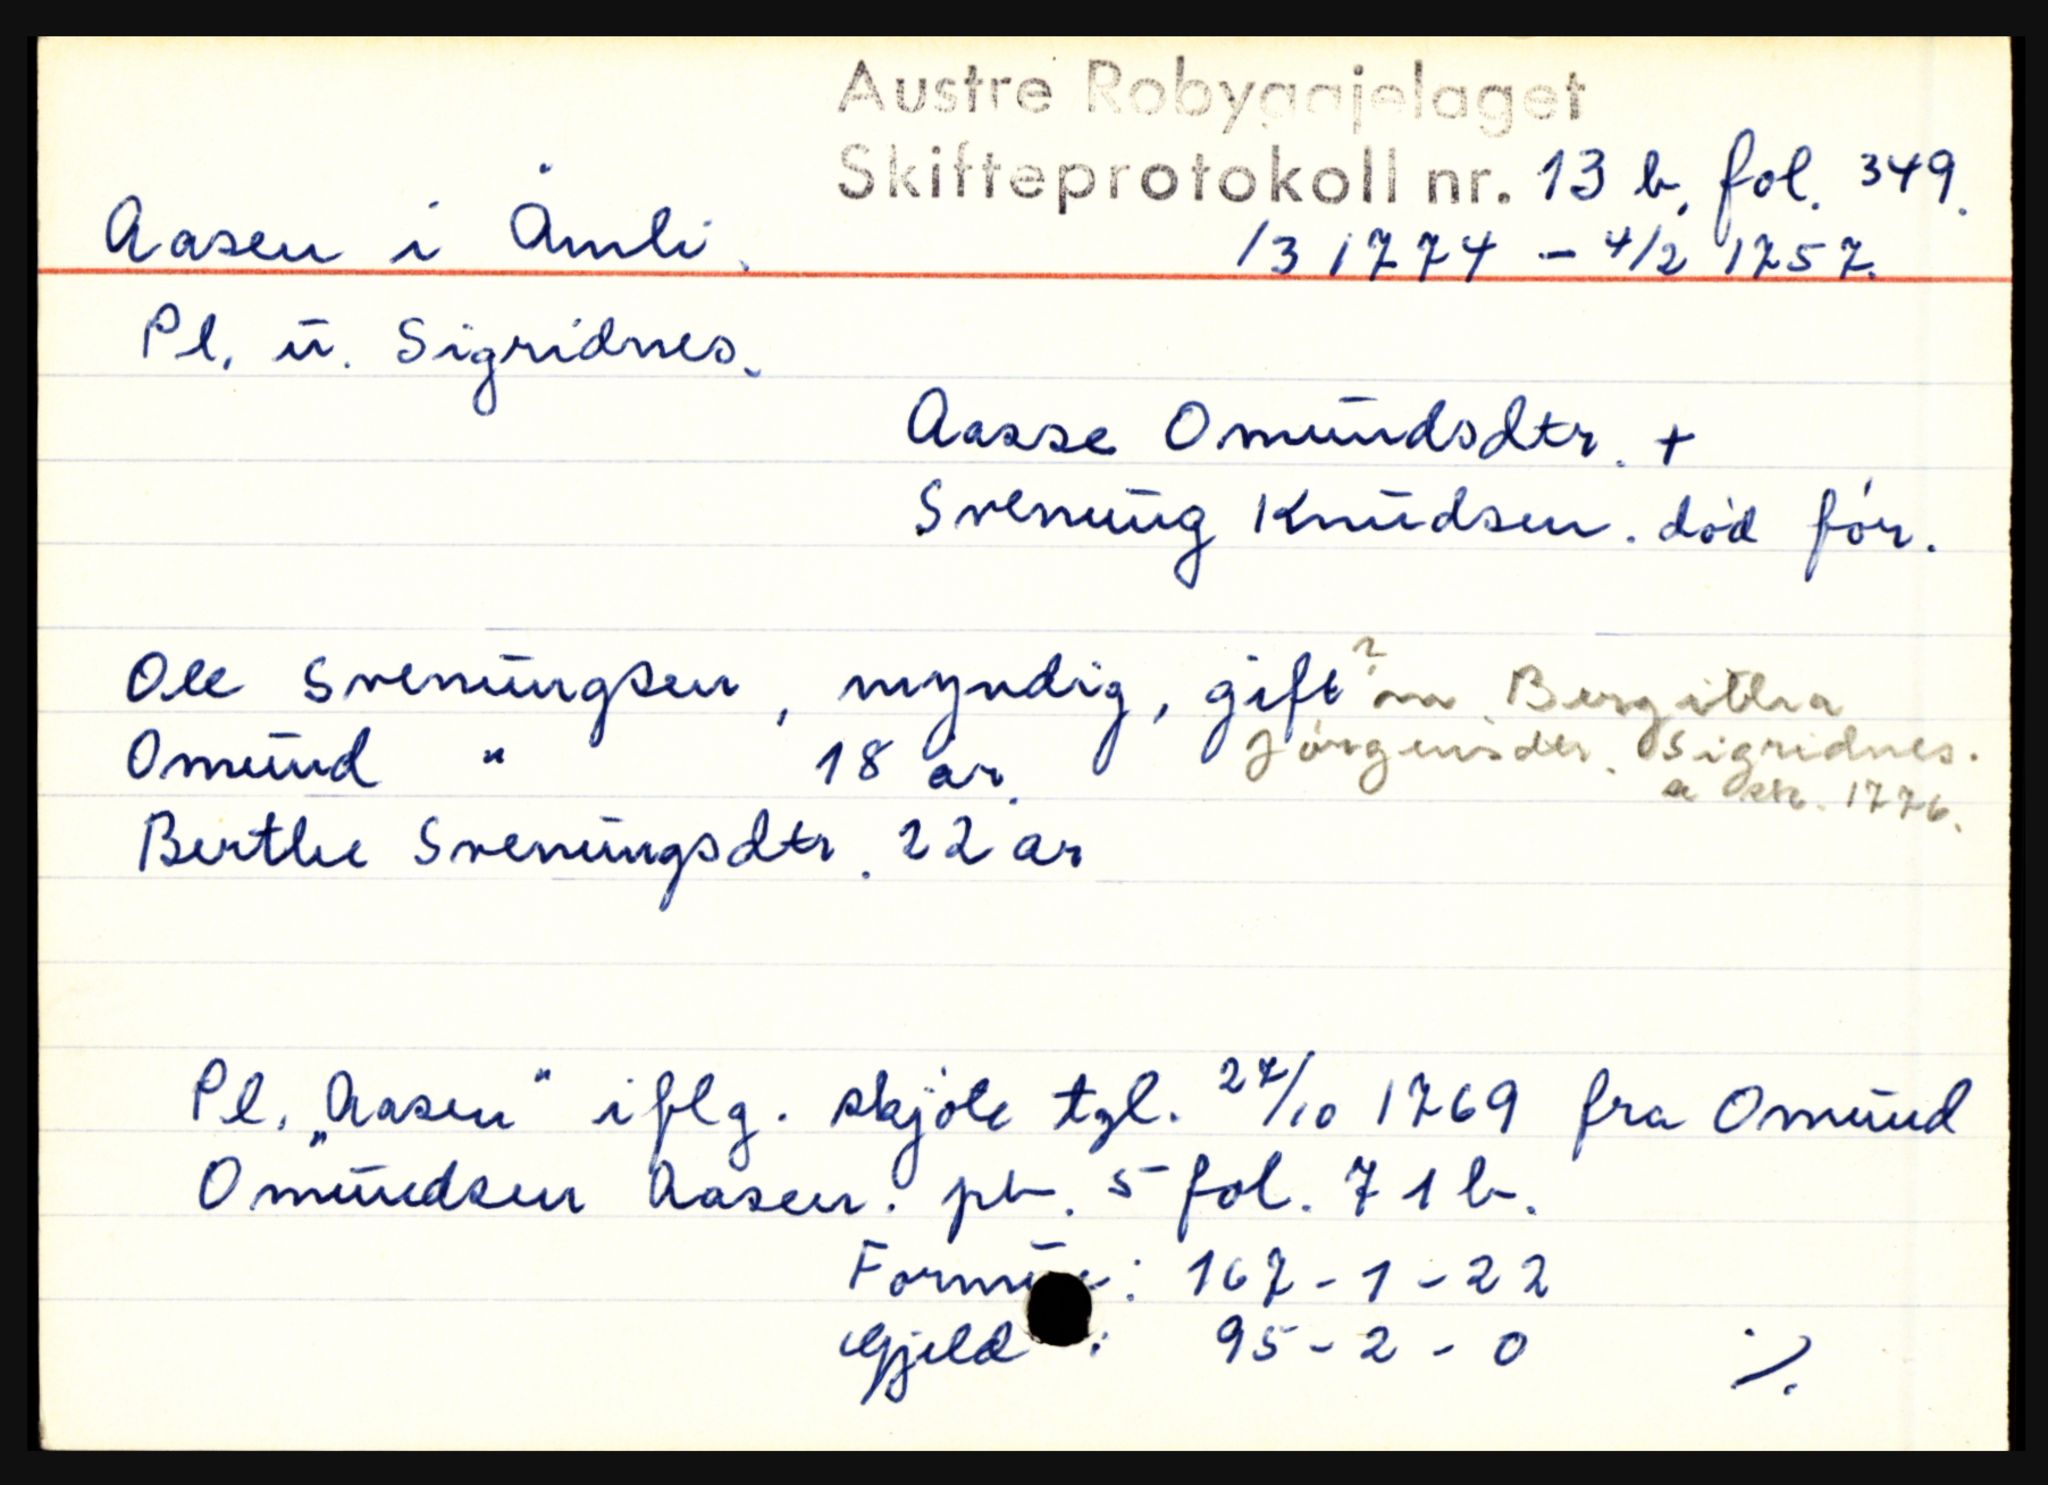 Austre Robyggjelaget
Skifteprotokoll nr. 13 b, fol. 349.
Aasen i Åmli. /3 1774 - 4/2 1757.
Pl. ū. Sigridnes.
Aasse Omūndsdtr. +
Svenūng Knūdsen. död för.
Ole Svenūngsen, myndig, gift ? m. Bergitha
Jörgensdtr. Sigridnes.
Omūnd " 18 år.
1776.
Berthe Svenūngsdtr. 22 år
Pl. „Aasen" iflg. skjöte tgl. 27/10 1769 fra Omūnd
Omūndsen Aasen. pb. 5 fol. 71 b.
Formūe: 167 - 1 - 22
Gjeld : 95 - 2 - 0 ./.